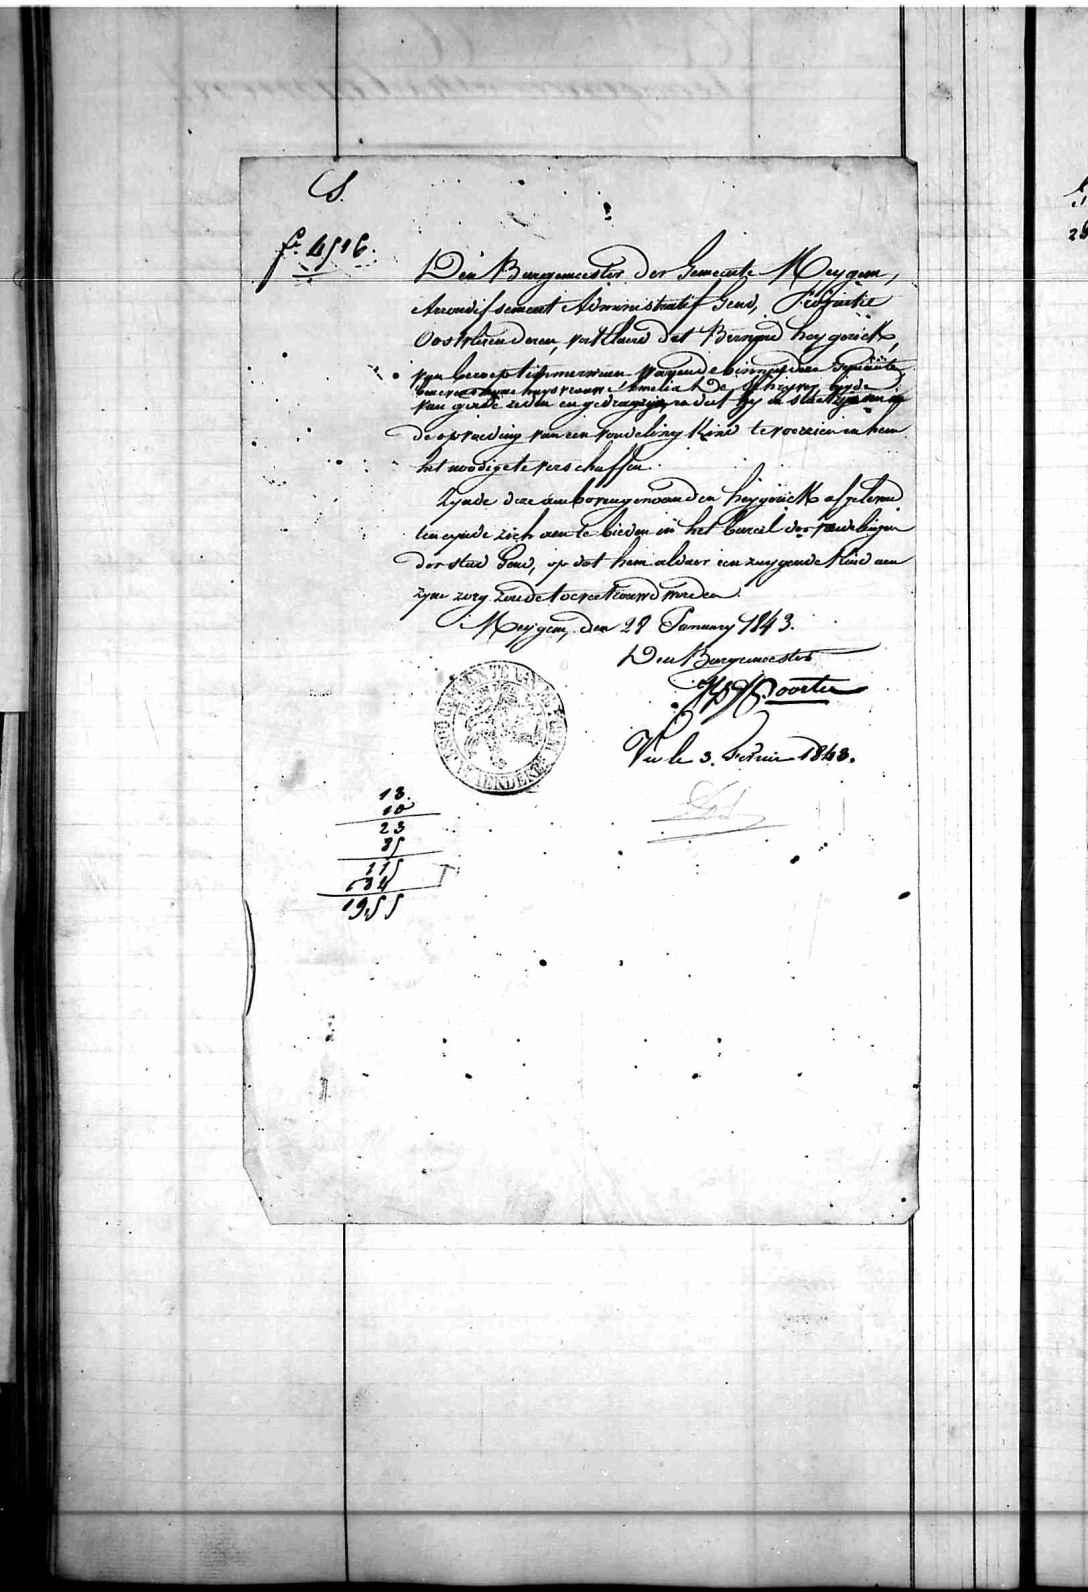 S.
f° 4516.
Den Burgemeester der Gemeente Meygem,
Arrondissement Administratif Gend, Provintie
Oostvlaenderen, verklaerd dat Bernard heygerick,
van beroep timmerman wonende binnen deze Gemeente
en zyne huysvrouw Amelia De beyde
van goede zeden en gedrag zyn, en dat hy in staet is om in
de opvoeding van een vondeling Kind te voorzien en hem
het noodige te verschaffen.
Zynde deze aen bovengenoemden heygerick afgeleverd
ten eynde zich aen te bieden in het bureel der vondelingen
der stad Gend, op dat hem aldaer een zuygende Kind aen
zyne zorg zoude toevertrouwd worden.
Meygem, den 28 January 1843.
Den Burgemeester
Vu le 3. Fevrier 1843.
13.
10
23
85
115
1955